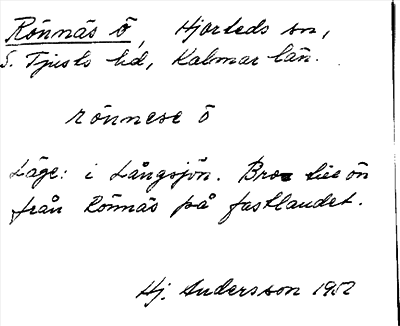 Rönnäs ö, Hjorteds sn,
S. Tjusts hd, Kalmar län.
rönnese ö
Läge: i Långsjön. Bro till ön
från Rönnäs på fastlandet.
Hj. Andersson 1952